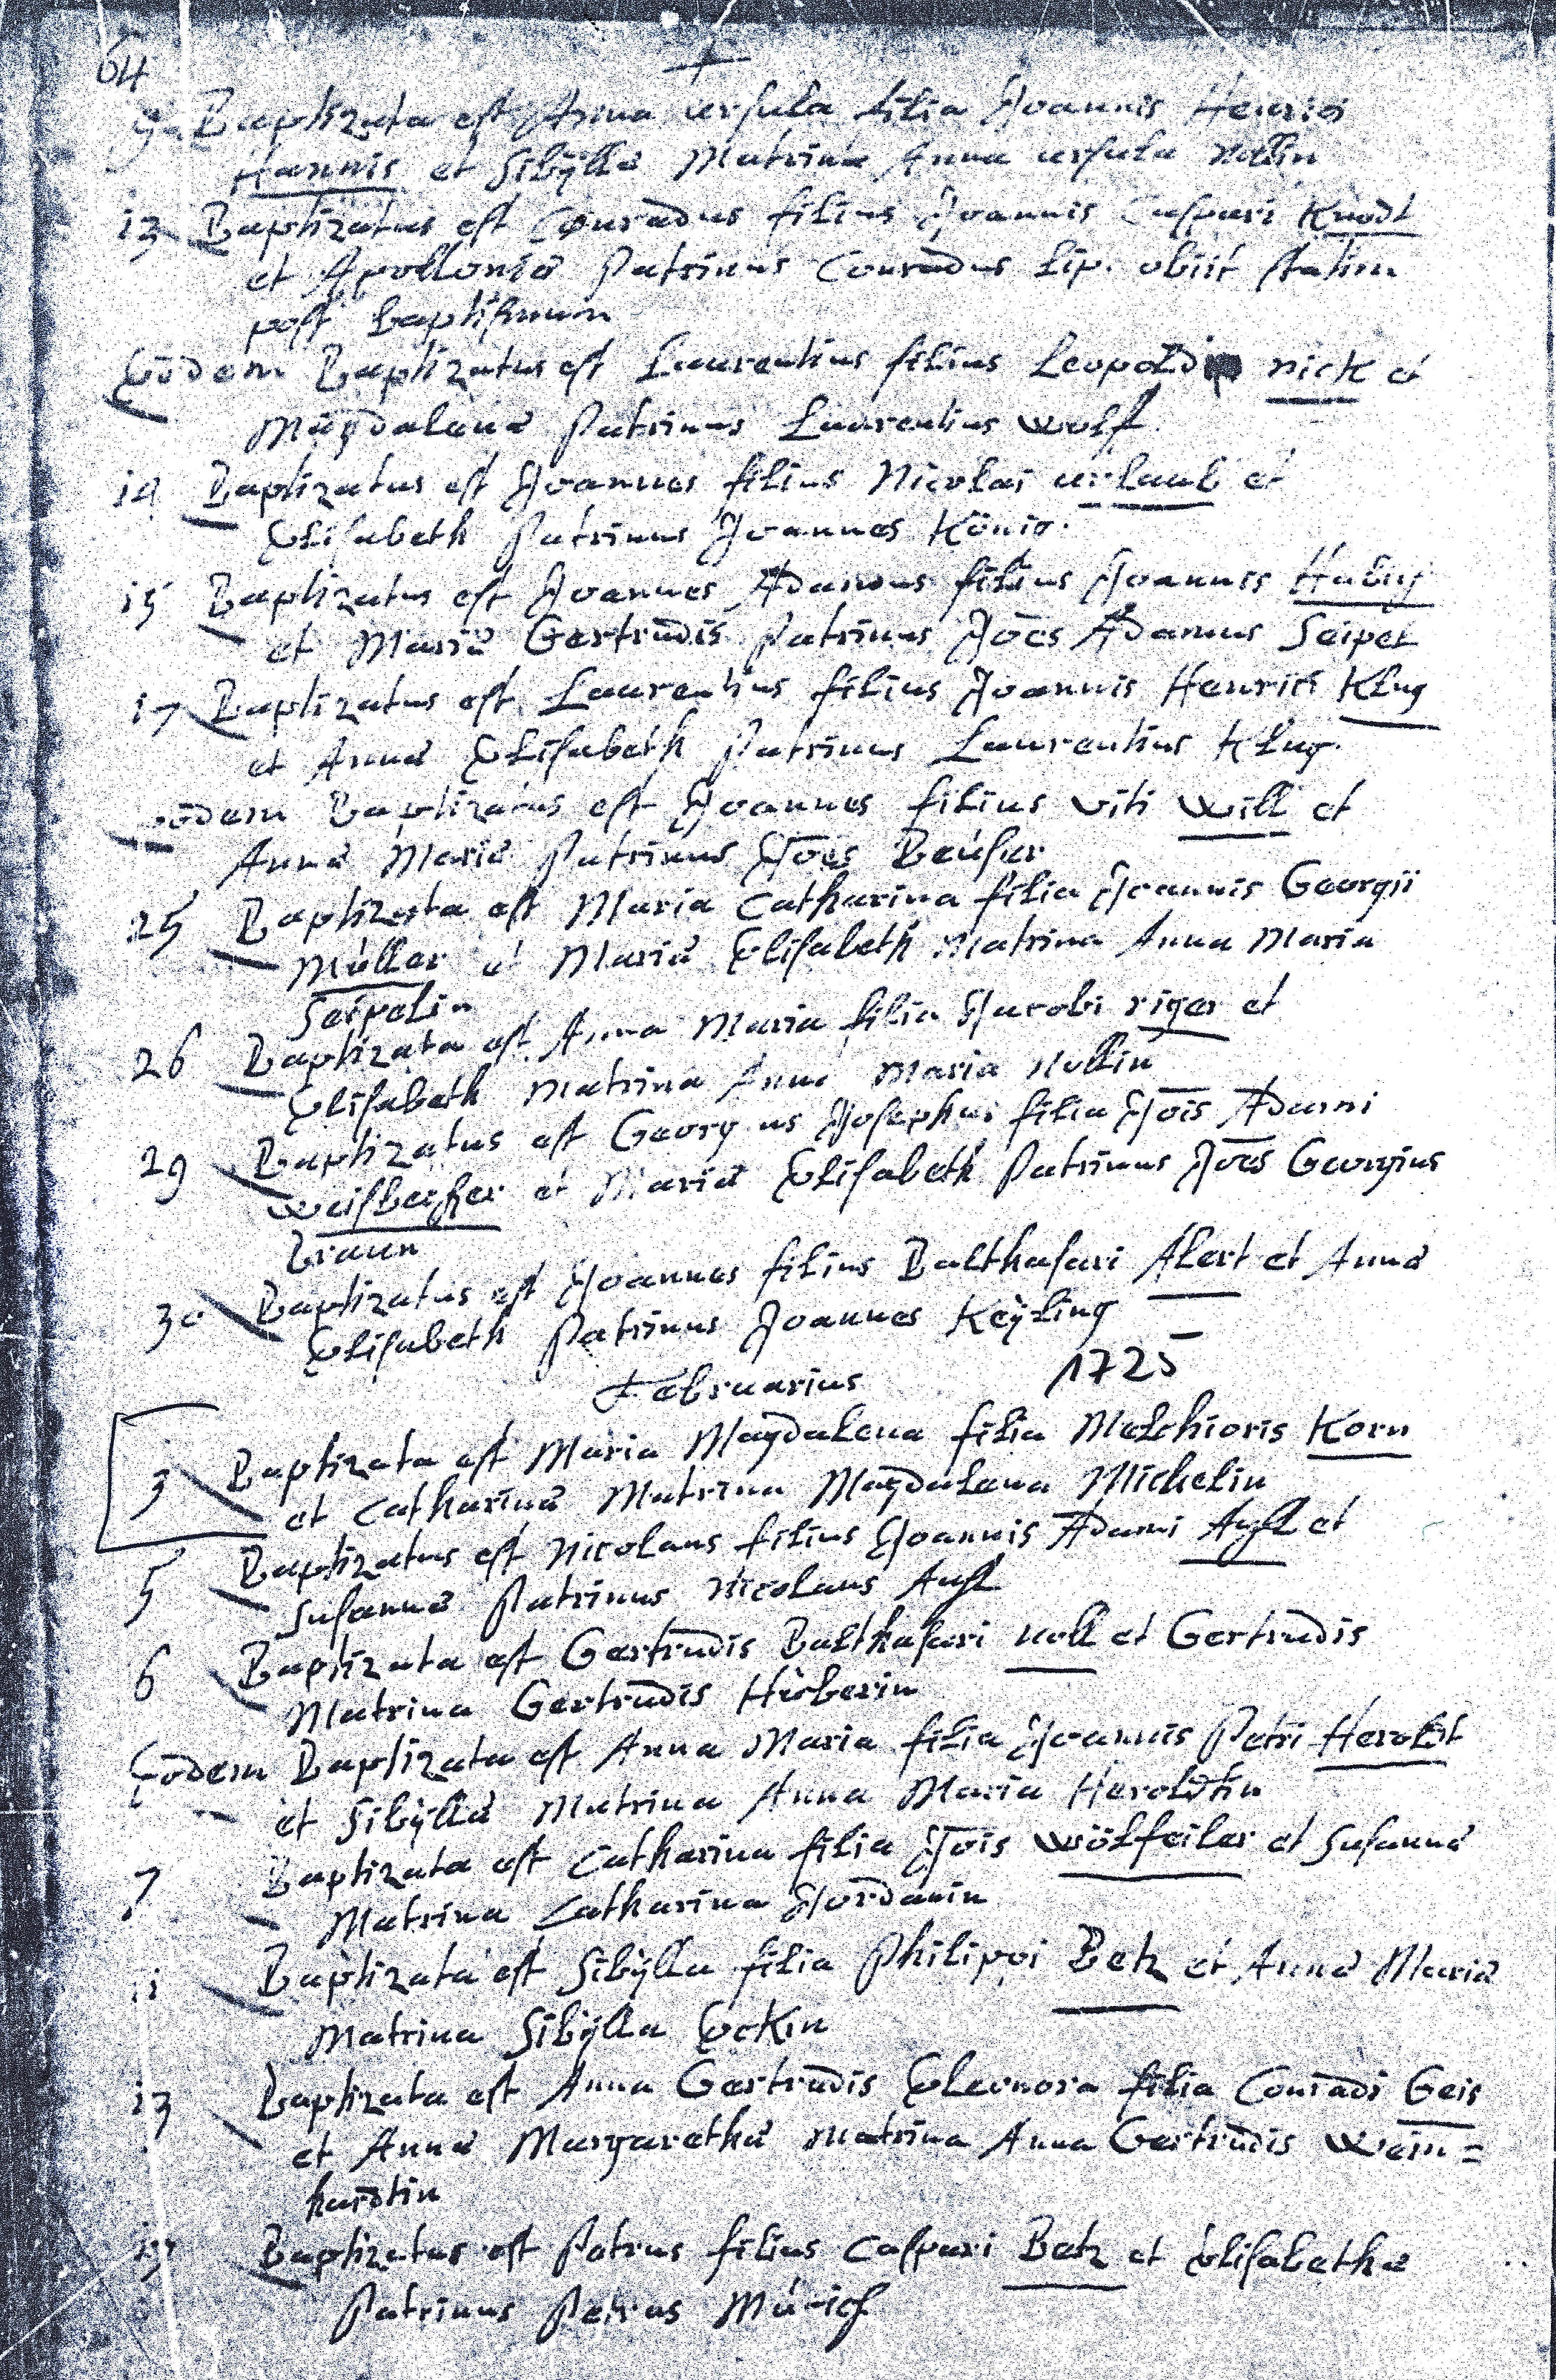 64
9 Baptizata est Anna ursula filia Joannis Henrici
Hannis et Sibÿllæ Matrina Anna ursula Nollin
13 Baptizatus est Conradus filius Joannis Caspari Knodt
et Apolloniæ Patrinus Conradus Lip. obiit statim
post baptismum
Eodem Baptizatus est Laurentius filius Leopoldi nick et
Magdalenæ Patrinus Laurentius wolf.
14 Baptizatus est Joannes filius Nicolai urlaub et
Elisabeth Patrinus Joannes König.
15 Baptizatus est Joannes Adamus filius Joannis Habig
et Mariæ Gertrudis Patrinus Joēs Adamus Seipel
17 Baptizatus est Laurentius filius Joannis Henrici Klug
et Annæ Elisabeth Patrinus Laurentius Klug.
eodem Baptizatus est Joannes filius viti will et
Annæ Mariæ Patrinus Joēs
25 Baptizata est Maria Catharina filia Joannis Georgii
Müller et Mariæ Elisabeth Matrina Anna Maria
Seipelin
26 Baptizata est Anna Maria filia Jacobi riger et
Elisabeth Matrina Anna Maria Nollin
29 Baptizatus est Georgius Josephus filia Joīs Adami
et Mariæ Elisabeth Patrinus Joēs Georgius
Braun
30 Baptizatus est Joannes filius Balthasari Alert et Annæ
Elisabeth Patrinus Joannes Keÿling
Februarius 1725
3 Baptizata est Maria Magdalena filia Melchioris Korn
et Catharinæ Matrina Magdalena Michelin
5 Baptizatus est Nicolaus filius Joannis Adami et
Susannæ Patrinus Nicolaus
6 Baptizata est Gertrudis Balthasari noll et Gertrudis
Matrina Gertrudis Huberin
Eodem Baptizata est Anna Maria filia Joannis Petri Heroldt
et Sibÿllæ Matrina Anna Maria Heroldtin
7 Baptizata est Catharina filia Joīs wölfeiler et Susannæ
Matrina Catharina Jordanin
11 Baptizata est Sibÿlla filia Philippi Betz et Annæ Mariæ
Matrina Sibÿlla Eckin
13 Baptizata est Anna Gertrudis Eleonora filia Conradi Geis
et Annæ Margarethæ Matrina Anna Gertrudis Wein=
hardtin
Baptizatus est Petrus filius Caspari Betz et Elisabethæ
Patrinus Petrus